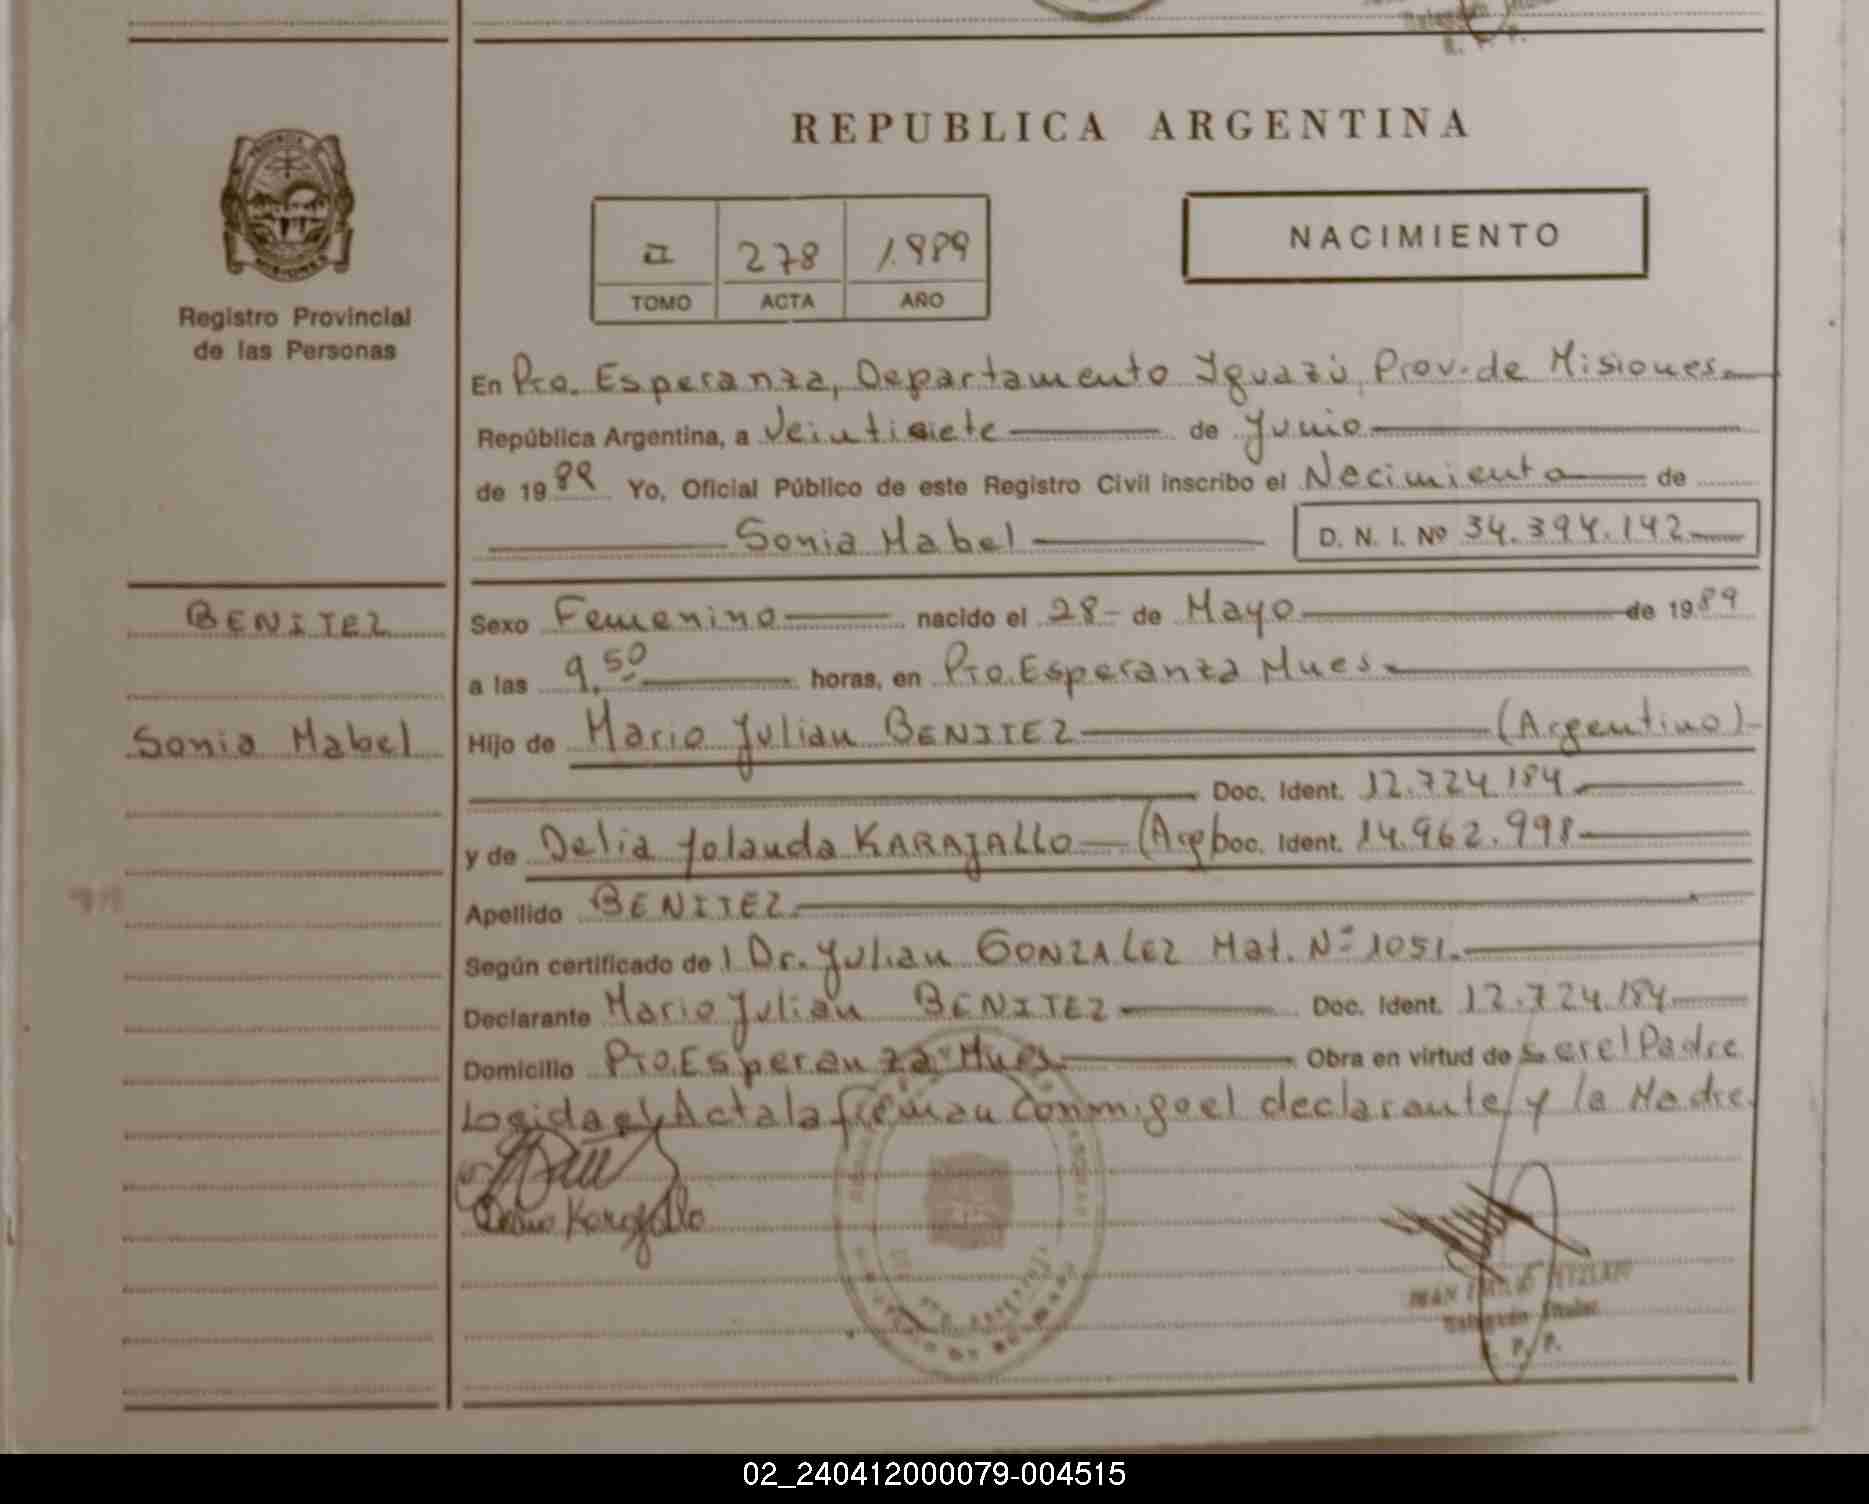 REPUBLICA ARGENTINA
Registro Provincial
de las Personas
II 278 1.989
TOMO ACTA AÑO
NACIMIENTO
En Pto. Esperanza, Departamento Iguazú, Prov. de Misiones
República Argentina, a Veintisiete de Junio
de 1989 Yo, Oficial Público de este Registro Civil inscribo el Necimiento de
Sonia Mabel D. N. I. Nº 34.394.142
BENITEZ
Sonia Mabel
Sexo Femenino nacido el 28- de Mayo de 1989
a las 9,50 horas, en Pto. Esperanza Mnes
Hijo de Mario Julian BENITEZ (Argentino)
Doc. Ident. 12.724.184
y de Delia Yolanda KARAJALLO (Arg) Doc. Ident. 14.962.998
Apellido BENITEZ
Según certificado de l Dr. Julian GONZALEZ Mat. Nº 1051.
Declarante Mario Julian BENITEZ Doc. Ident. 12.724.184
Domicilio Pto. Esperanza Mnes Obra en virtud de Ser el Padre
el Acta la firman Conmigo el declarante y la Madre
Karajallo
Delegado Titular
R. P. P.
02_240412000079-004515